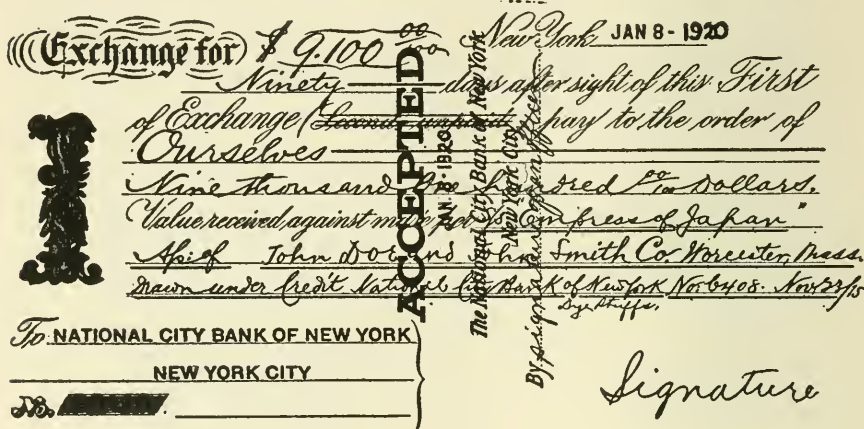 Exchange for $ 9.100 00/00 New York JAN 8 - 1920
Ninety days after sight of this First
of Exchange (Second unpaid) pay to the order of
Ourselves
Nine thousand One hundred 00/100 Dollars.
Value received, against "Empress of Japan"
John Doe and John Smith Co. Worcester, Mass.
Drawn under Credit National City Bank of New York No. 6408. Nov. 23/15
To NATIONAL CITY BANK OF NEW YORK
NEW YORK CITY
No.
Signature
ACCEPTED
JAN. 8 - 1920
The National City Bank of New York
New York City
By signature